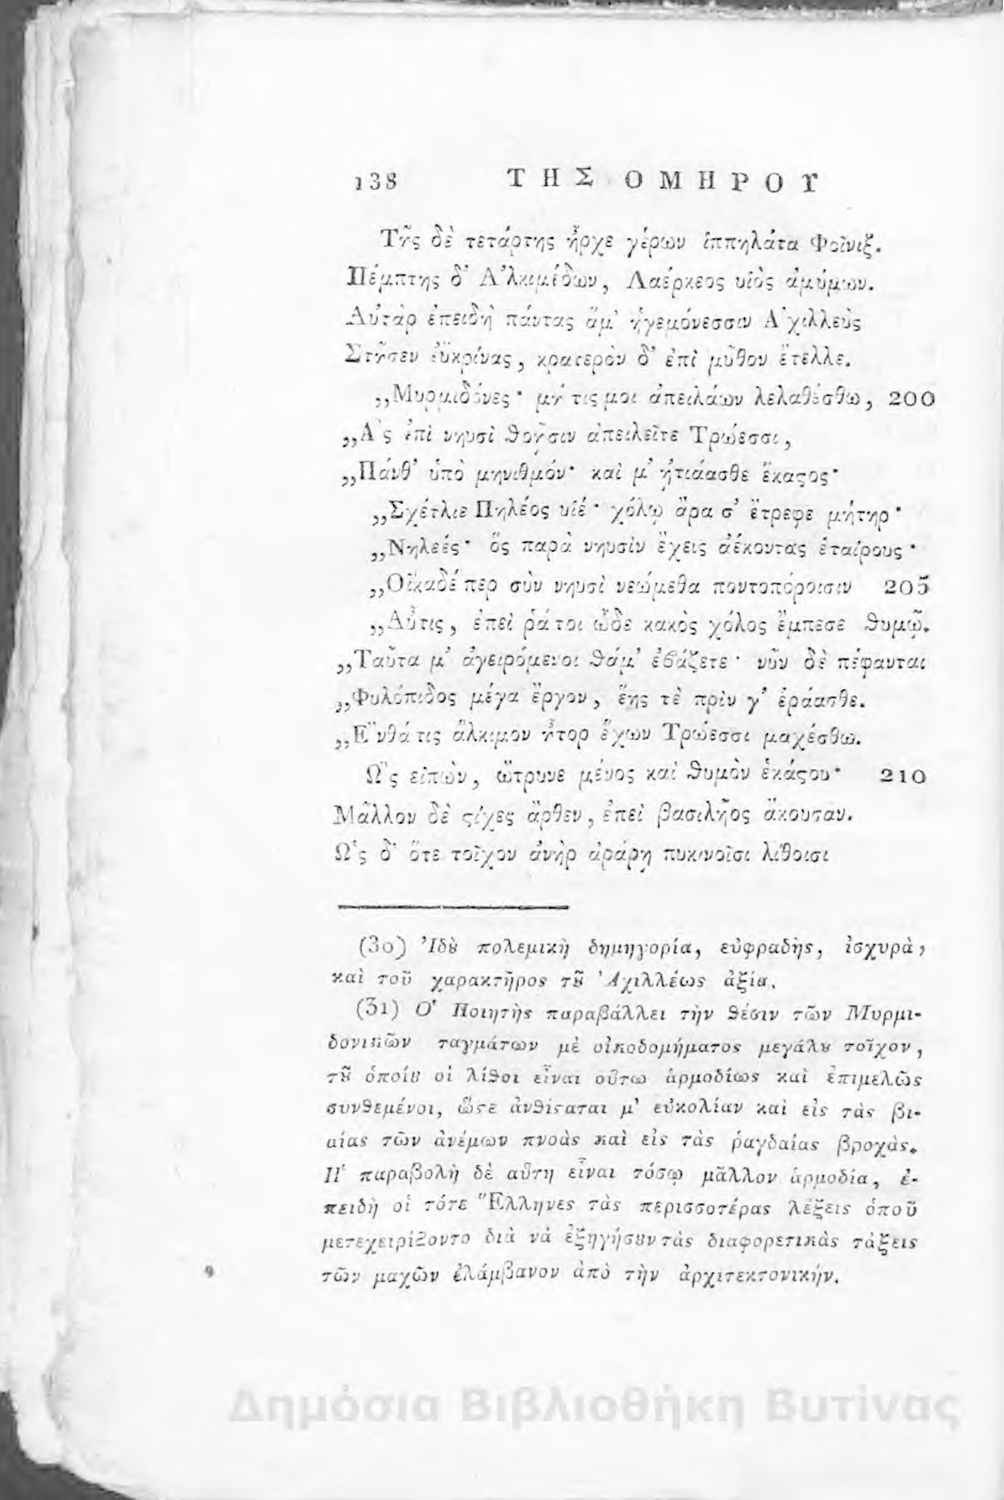 138 ΤΗΣ ΟΜΗΡΟΥ
Τῆς δὲ τετάρτης ἦρχε γέρων ἱππηλάτα Φοῖνιξ.
Πέμπτης δ᾽ Ἀλκιμέδων, Λαέρκεος υἱὸς ἀμύμων.
Αὐτὰρ ἐπειδὴ πάντας ἅμ᾽ ἡγεμόνεσσιν Ἀχιλλεὺς
Στῆσεν ἐϋκρίνας, κρατερὸν δ᾽ ἐπὶ μῦθον ἔτελλε.
„Μυρμιδόνες· μή τις μοι ἀπειλάων λελαθέσθω, 200
„Ἃς ἐπὶ νηυσὶ ϑοῇσιν ἀπειλεῖτε Τρώεσσι,
„Πάνθ᾽ ὑπὸ μηνιθμόν· καὶ μ᾽ ᾐτιάασθε ἕκαϛος·
„Σχέτλιε Πηλέος υἱέ· χόλῳ ἄρα σ᾽ ἔτρεφε μήτηρ·
„Νηλεές· ὃς παρὰ νηυσὶν ἔχεις ἀέκοντας ἑταίρους·
„Οἴκαδέ περ σὺν νηυσὶ νεώμεθα ποντοπόροισιν 205
„Αὖτις, ἐπεί ῥά τοι ὧδε κακὸς χόλος ἔμπεσε ϑυμῷ.
„Ταῦτα μ᾽ ἀγειρόμενοι ϑάμ᾽ ἐϐάζετε· νῦν δὲ πέφανται
„Φυλόπιδος μέγα ἔργον, ἕης τὲ πρὶν γ᾽ ἐράασθε.
„Ἔνθά τις ἄλκιμον ἦτορ ἔχων Τρώεσσι μαχέσθω.
Ὣς εἰπὼν, ὤτρυνε μένος καὶ ϑυμὸν ἑκάϛου· 210
Μᾶλλον δὲ ϛίχες ἄρθεν, ἐπεὶ βασιλῆος ἄκουσαν.
Ὡς δ᾽ ὅτε τοῖχον ἀνὴρ ἀράρῃ πυκινοῖσι λίθοισι
(30) Ἰδȣ̀ πολεμικὴ δημηγορία, εὐφραδὴς, ἰσχυρὰ,
καὶ τοῦ χαρακτῆρος τȣ͂ Ἀχιλλέως ἀξία.
(31) Ὁ Ποιητὴς παραβάλλει τὴν ϑέσιν τῶν Μυρμι-
δονικῶν ταγμάτων μὲ οἰκοδομήματος μεγάλȣ τοῖχον,
τȣ͂ ὁποίȣ οἱ λίϑοι εἶναι οὕτω ἁρμοδίως καὶ ἐπιμελῶς
συνϑεμένοι, ὥϛε ἀνϑίϛαται μ᾽ εὐκολίαν καὶ εἰς τὰς βι-
αίας τῶν ἀνέμων πνοὰς καὶ εἰς τὰς ῥαγδαίας βροχὰς.
Ἡ παραβολὴ δὲ αὕτη εἶναι τόσῳ μᾶλλον ἁρμοδία, ἐ-
πειδὴ οἱ τότε Ἕλληνες τὰς περισσοτέρας λέξεις ὁποῦ
μετεχειρίζοντο διὰ νὰ ἐξηγήσȣν τὰς διαφορετικὰς τάξεις
τῶν μαχῶν ἐλάμβανον ἀπὸ τὴν ἀρχιτεκτονικήν.
Δημόσια Βιβλιοθήκη Βυτίνας